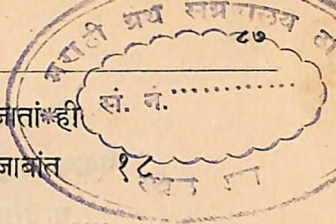 मराठी ग्रंथ संग्रहालय
८७
सं. नं.
जातां*ही
जाबांत १८